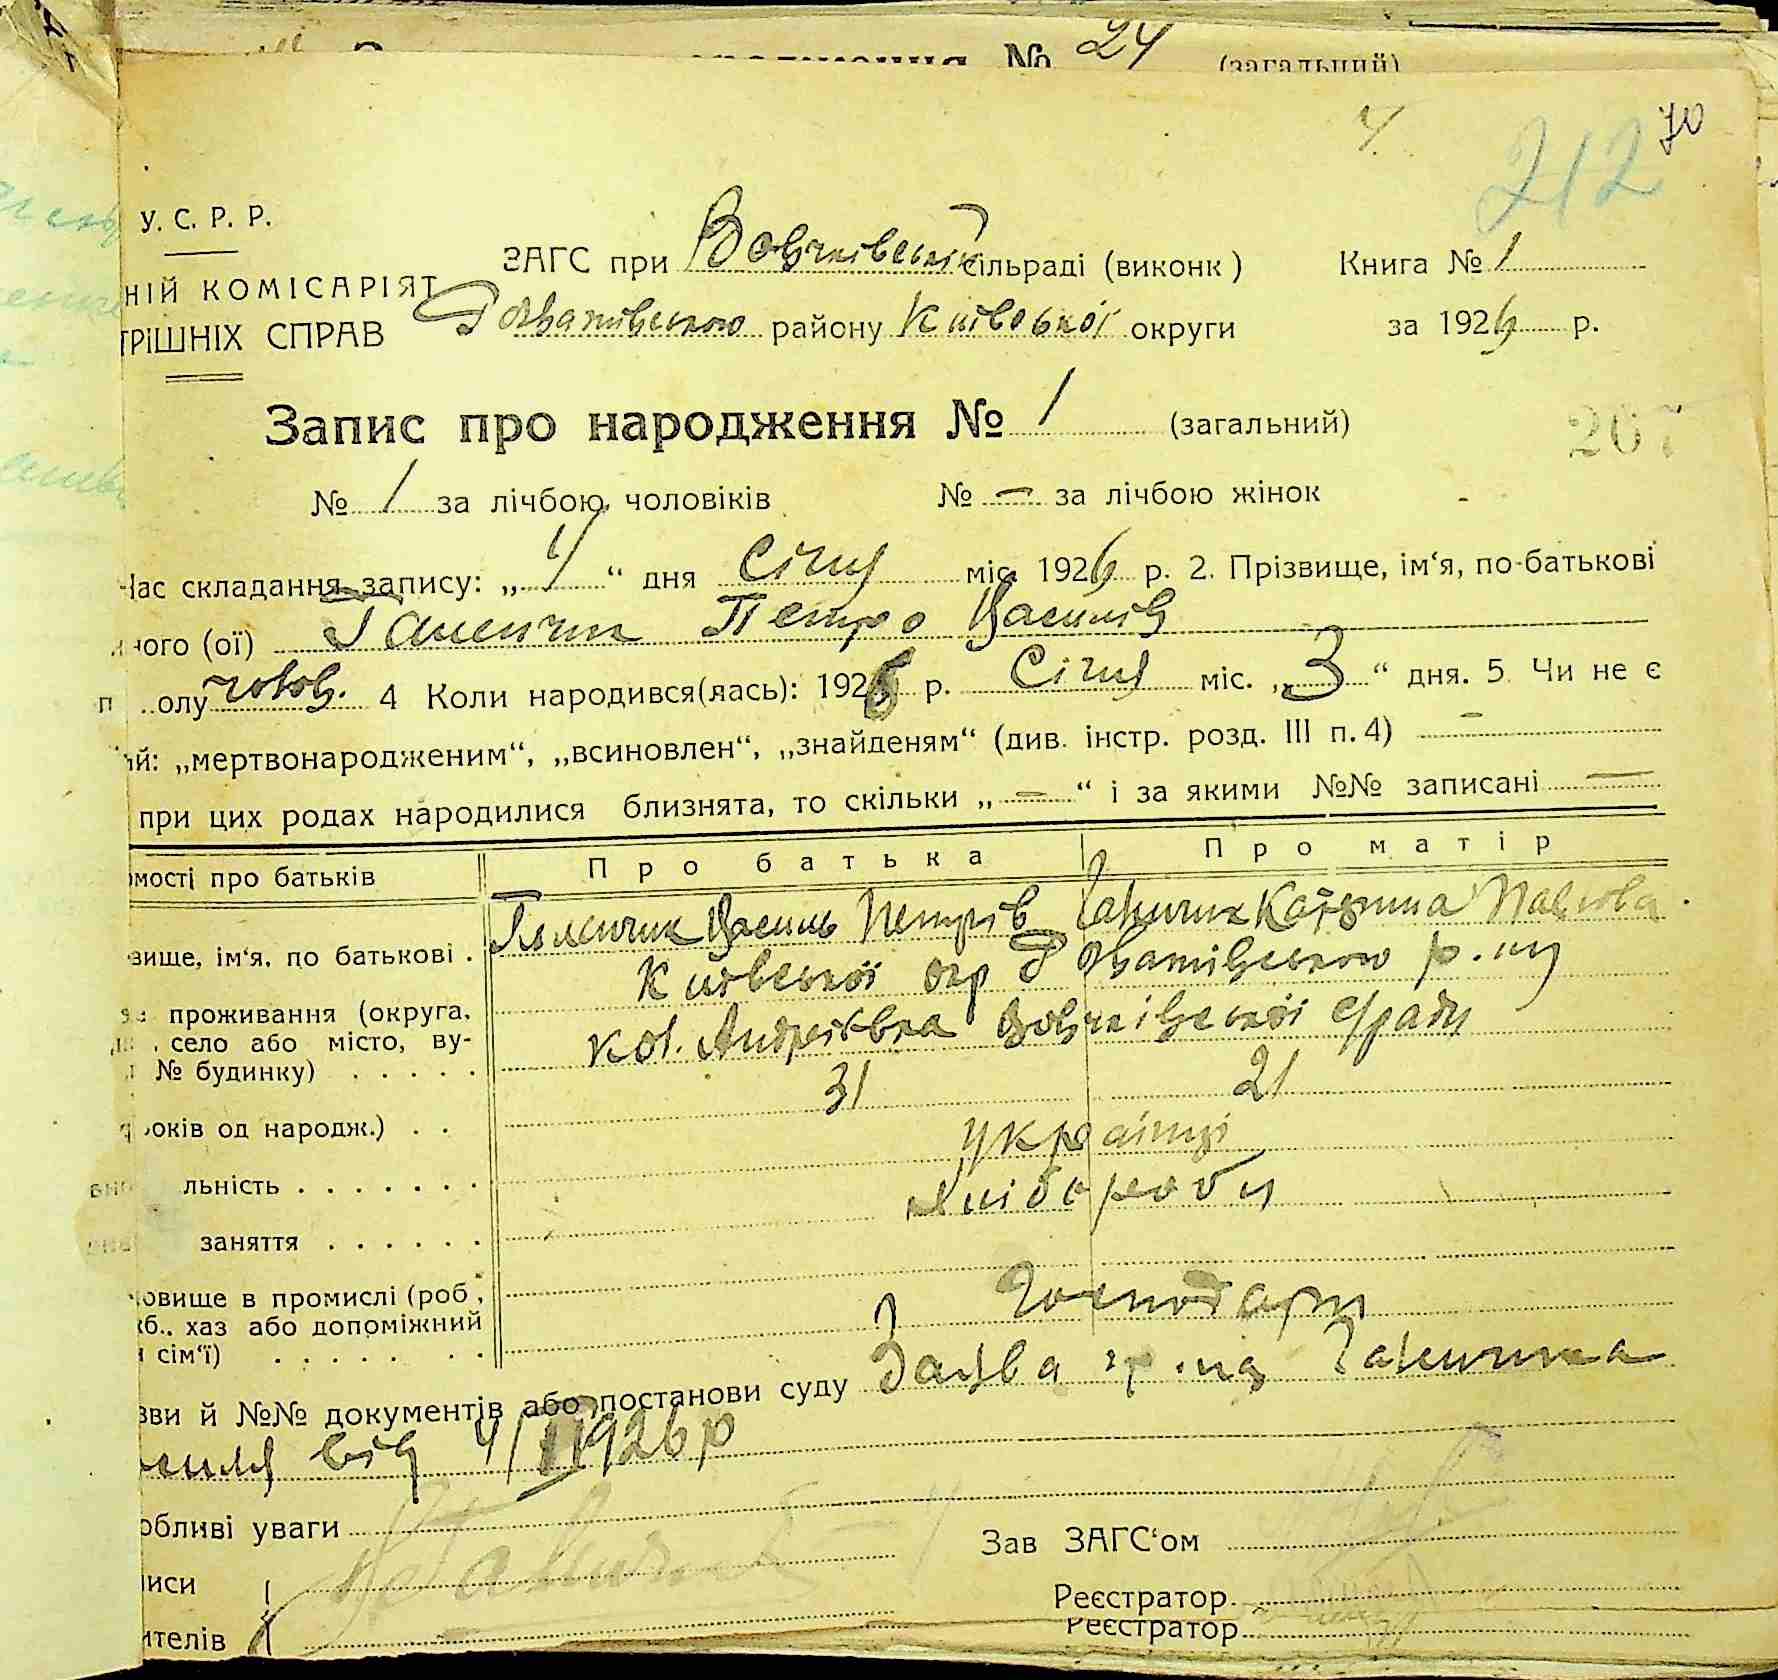 № 24 (загальний)
4
212 70
У. С. Р. Р.
ЗАГС при Вовчківській сільраді (виконк) Книга № 1
НІЙ КОМІСАРІЯТ
ТРІШНІХ СПРАВ району Київської округи за 1926 р.
Запис про народження № 1 (загальний)
267
№ 1 за лічбою чоловіків № — за лічбою жінок
Час складання запису: „ 4 “ дня Січня міс. 1926 р. 2. Прізвище, ім‘я, по-батькові
ного (ої) Галенчик Петро Василів
олу чолов. 4 Коли народився(лась): 1926 р. Січня міс. „ 3 “ дня. 5 Чи не є
ий: „мертвонародженим“, „всиновлен“, „знайденям“ (див. інстр. розд. III п. 4) —
при цих родах народилися близнята, то скільки „ — “ і за якими №№ записані —
омості про батьків Про батька Про матір
вище, ім‘я, по батькові . Галенчик Василь Петрів Катерина Павлова
Київської окр р.ну
проживання (округа,
село або місто, ву-
№ будинку) . . . . . кол. Андріївка Вовчківської с/ради
оків од народж.) . . 31 21
льність . . . . . . . українці
заняття . . . . . . хлібороби
овище в промислі (роб.,
хб., хаз або допоміжний
сім‘ї) . . . . . . . Господарі
зви й №№ документів або постанови суду Заява гр.на
силя від 4/I 1926 р
обливі уваги
Зав ЗАГС‘ом
иси
Реєстратор
Реєстратор
ителів